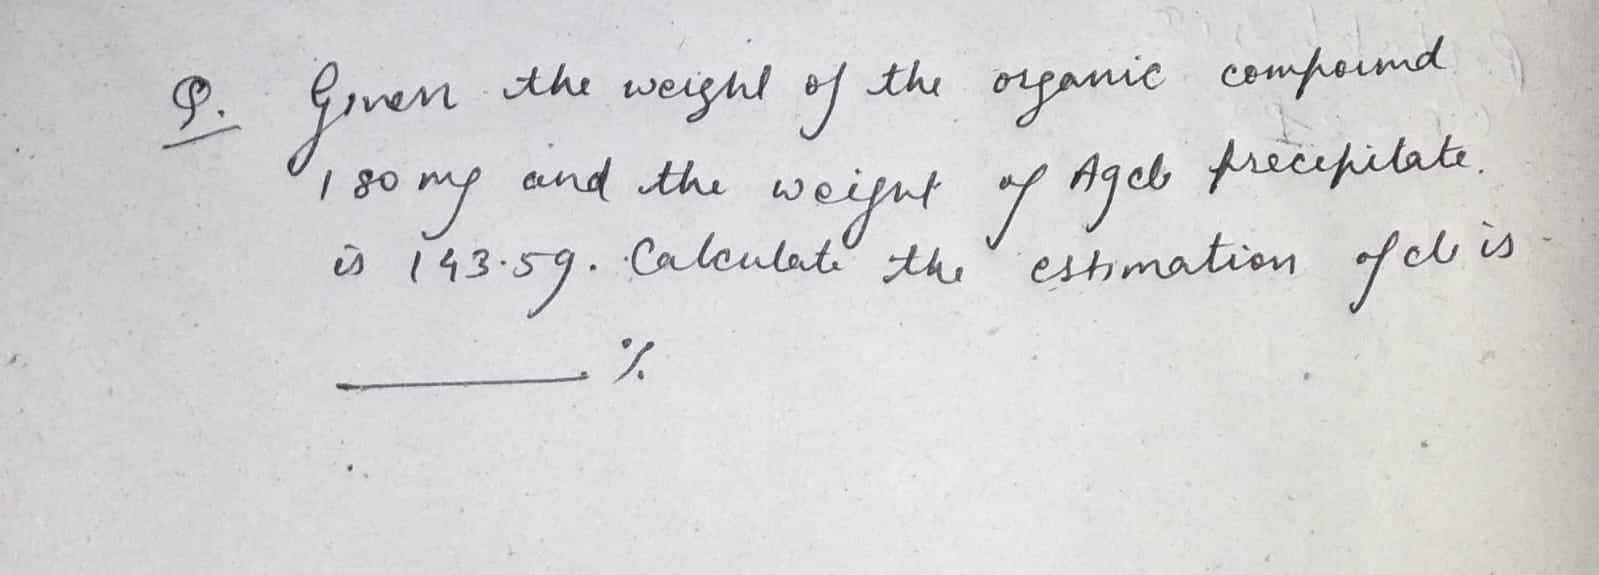 Q. Given the weight of the organic compound
180 mg and the weight of Agcl precipitate.
is 143.5g. Calculate the estimation of cl is
______ %.